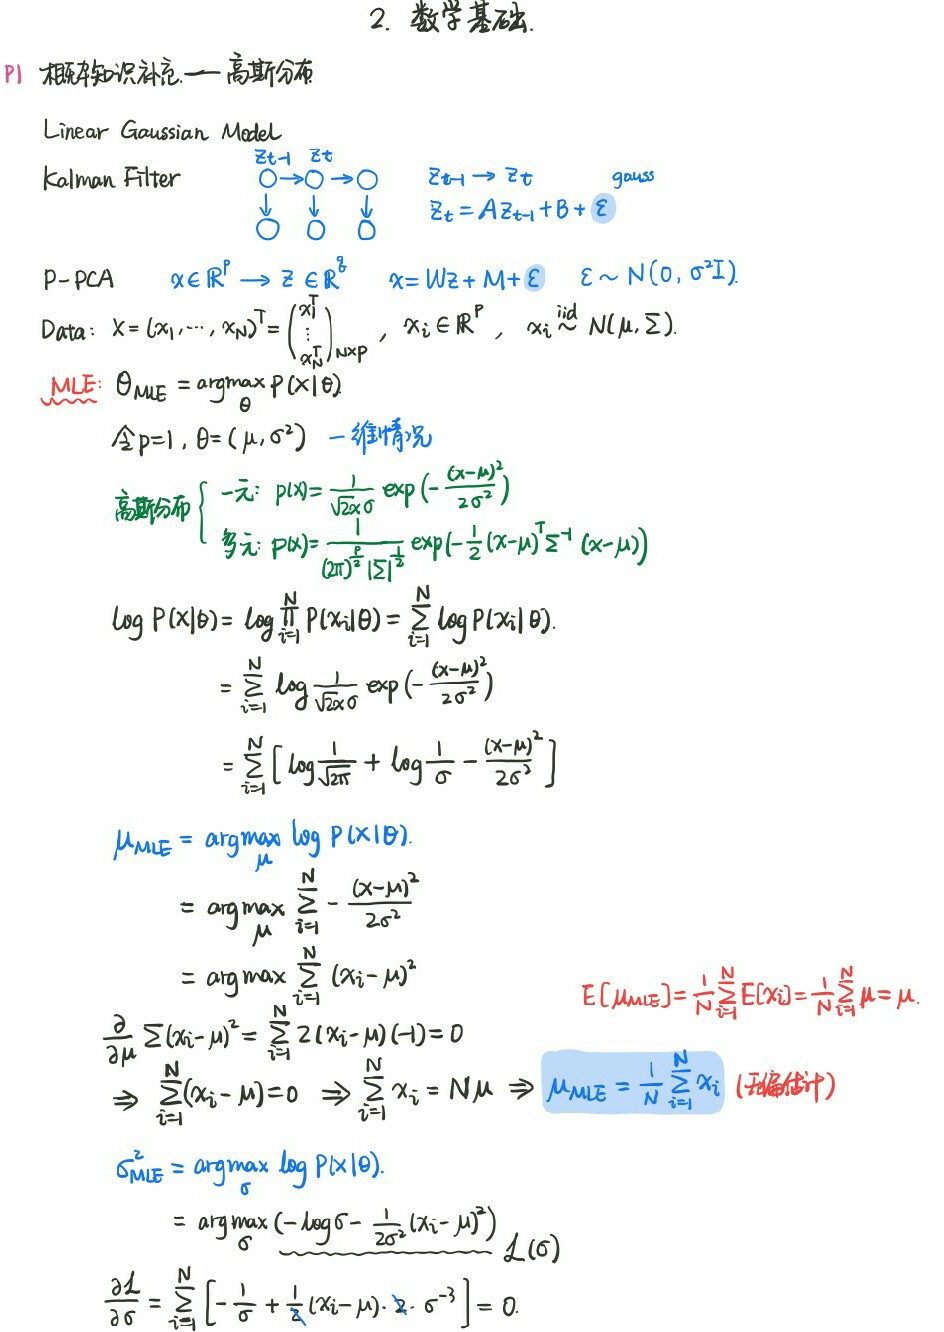 2. 数学基础.
P1 概率知识补充.—高斯分布
Linear Gaussian Model
Kalman Filter z_{t-1} z_t z_{t-1} → z_t gauss
z_t = A z_{t-1} + B + ε
P-PCA x∈ℝ^p → z∈ℝ^q x = Wz + M + ε ε ~ N(0, σ²I).
Data: X = (x_1, ⋯, x_N)^T = (x_1^T ⋮ x_N^T)_{N×p} , x_i∈ℝ^p , x_i ~^{iid} N(μ, Σ).
MLE: θ_{MLE} = argmax_θ P(X|θ)
令p=1, θ=(μ, σ²) 一维情况
高斯分布 { 一元: p(x) = 1/(√2π σ) exp(-(x-μ)²/2σ²)
多元: p(x) = 1/((2π)^{p/2} |Σ|^{1/2}) exp(-1/2 (x-μ)^T Σ^{-1} (x-μ))
log P(X|θ) = log ∏_{i=1}^N P(x_i|θ) = ∑_{i=1}^N log P(x_i|θ).
= ∑_{i=1}^N log 1/(√2π σ) exp(-(x-μ)²/2σ²)
= ∑_{i=1}^N [log 1/√2π + log 1/σ - (x-μ)²/2σ²]
μ_{MLE} = argmax_μ log P(X|θ).
= argmax_μ ∑_{i=1}^N - (x-μ)²/2σ²
= argmax ∑_{i=1}^N (x_i-μ)²
E[μ_{MLE}] = 1/N ∑_{i=1}^N E[x_i] = 1/N ∑_{i=1}^N μ = μ.
∂/∂μ ∑(x_i-μ)² = ∑_{i=1}^N 2(x_i-μ)(-1) = 0
⇒ ∑_{i=1}^N (x_i-μ) = 0 ⇒ ∑_{i=1}^N x_i = Nμ ⇒ μ_{MLE} = 1/N ∑_{i=1}^N x_i (无偏估计)
σ²_{MLE} = argmax_σ log P(X|θ).
= argmax_σ (-logσ - 1/2σ² (x_i-μ)²) ℒ(σ)
∂ℒ/∂σ = ∑_{i=1}^N [-1/σ + 1/2 (x_i-μ)·2·σ^{-3}] = 0.